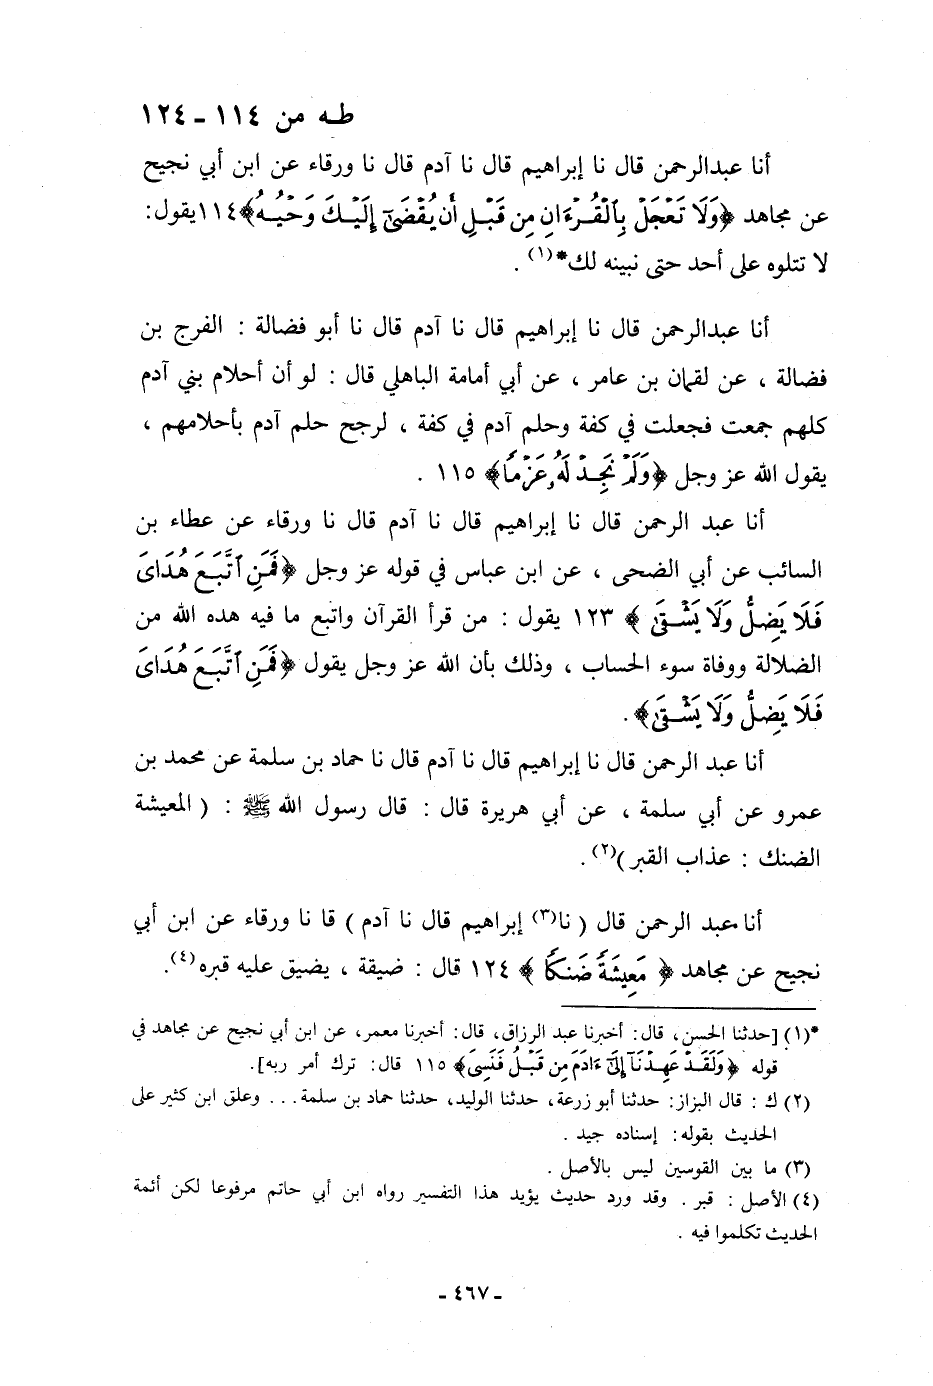 طـه من ١١٤ - ١٢٤
أنا عبدالرحمن قال نا إبراهيم قال نا آدم قال نا ورقاء عن ابن أبي نجيح
عن مجاهد ﴿وَلَا تَعْجَلْ بِالْقُرْءَانِ مِن قَبْلِ أَن يُقْضَىٰٓ إِلَيْكَ وَحْيُهُ﴾١١٤يقول:
لا تتلوه على أحد حتى نبينه لك*(١) .
أنا عبدالرحمن قال نا إبراهيم قال نا آدم قال نا أبو فضالة : الفرج بن
فضالة ، عن لقمان بن عامر ، عن أبي أمامة الباهلي قال : لو أن أحلام بني آدم
كلهم جمعت فجعلت في كفة وحلم آدم في كفة ، لرجح حلم آدم بأحلامهم ،
يقول الله عز وجل ﴿وَلَمْ نَجِدْ لَهُۥ عَزْمًا﴾ ١١٥ .
أنا عبد الرحمن قال نا إبراهيم قال نا آدم قال نا ورقاء عن عطاء بن
السائب عن أبي الضحى ، عن ابن عباس في قوله عز وجل ﴿فَمَنِ ٱتَّبَعَ هُدَاىَ
فَلَا يَضِلُّ وَلَا يَشْقَىٰ ﴾ ١٢٣ يقول : من قرأ القرآن واتبع ما فيه هده الله من
الضلالة ووفاة سوء الحساب ، وذلك بأن الله عز وجل يقول ﴿فَمَنِ ٱتَّبَعَ هُدَاىَ
فَلَا يَضِلُّ وَلَا يَشْقَىٰ﴾.
أنا عبد الرحمن قال نا إبراهيم قال نا آدم قال نا حماد بن سلمة عن محمد بن
عمرو عن أبي سلمة ، عن أبي هريرة قال : قال رسول الله ﷺ : ( المعيشة
الضنك : عذاب القبر )(٢) .
أنا عبد الرحمن قال ( نا(٣) إبراهيم قال نا آدم ) قا نا ورقاء عن ابن أبي
نجيح عن مجاهد ﴿ مَعِيشَةً ضَنكًا ﴾ ١٢٤ قال : ضيقة ، يضيق عليه قبره(٤).
*(١) [حدثنا الحسن، قال: أخبرنا عبد الرزاق، قال: أخبرنا معمر، عن ابن أبي نجيح عن مجاهد في
قوله ﴿وَلَقَدْ عَهِدْنَآ إِلَىٰٓ ءَادَمَ مِن قَبْلُ فَنَسِىَ﴾ ١١٥ قال: ترك أمر ربه].
(٢) ك : قال البزاز: حدثنا أبو زرعة، حدثنا الوليد، حدثنا حماد بن سلمة... وعلق ابن كثير على
الحديث بقوله: إسناده جيد .
(٣) ما بين القوسين ليس بالأصل .
(٤) الأصل : قبر . وقد ورد حديث يؤيد هذا التفسير رواه ابن أبي حاتم مرفوعا لكن أئمة
الحديث تكلموا فيه .
- ٤٦٧ -